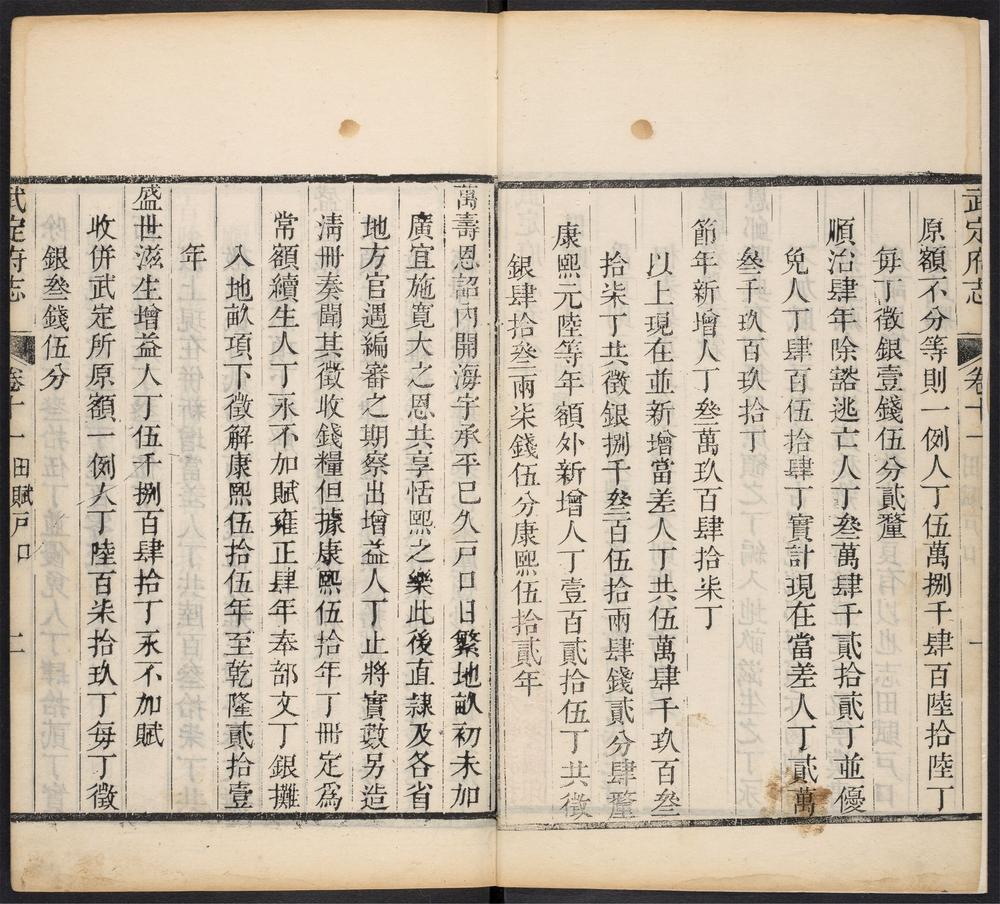 武定府志 卷十一 一
原額不分等則一例人丁伍萬捌千肆百陸拾陸丁
每丁徵銀壹錢伍分貳釐
順治肆年除豁逃亡人丁叁萬肆千貳拾貳丁並優
免人丁肆百伍拾肆丁實計現在當差人丁貳萬
叁千玖百玖拾丁
節年新增人丁叁萬玖百肆拾柒丁
以上現在並新增當差人丁共伍萬肆千玖百叁
拾柒丁共徵銀捌千叁百伍拾兩肆錢貳分肆釐
康熙元陸等年額外新增人丁壹百貳拾伍丁共徵
銀肆拾叁兩柒錢伍分康熙伍拾貳年
萬壽恩詔內開海宇承平已久戸口日繁地畝初未加
廣宜施寬大之恩共享恬熙之樂此後直隷及各省
地方官遇編審之期察出增益人丁止將實數另造
淸冊奏聞其徵收錢糧但據康熙伍拾年丁冊定爲
常額續生人丁永不加賦雍正肆年奉部文丁銀攤
入地畝項下徵解康熙伍拾伍年至乾隆貳拾壹
年
盛世滋生增益人丁伍千捌百肆拾丁永不加賦
收併武定所原額一例人丁陸百柒拾玖丁每丁徵
銀叁錢伍分
武定府志 卷十一 田賦戸口 二